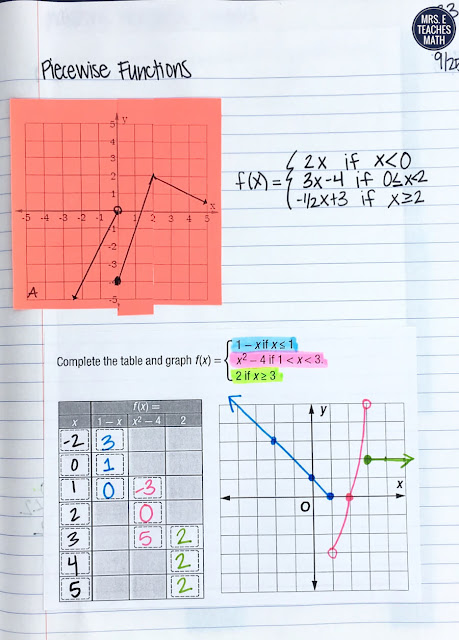 MRS. E
TEACHES
MATH
9/25
Piecewise Functions
y
5
4
3
2
1
x
-5 -4 -3 -2 -1 1 2 3 4 5
-1
-2
-3
-4
-5
A
f(x) = { 2x if x<0
3x-4 if 0≤x<2
-1/2x+3 if x≥2
1 – x if x ≤ 1
Complete the table and graph f(x) = { x² – 4 if 1 < x < 3.
2 if x ≥ 3
f(x) =
x 1 – x x² – 4 2
-2 3
0 1
1 0 -3
2 0
3 5 2
4 2
5 2
y
x
O